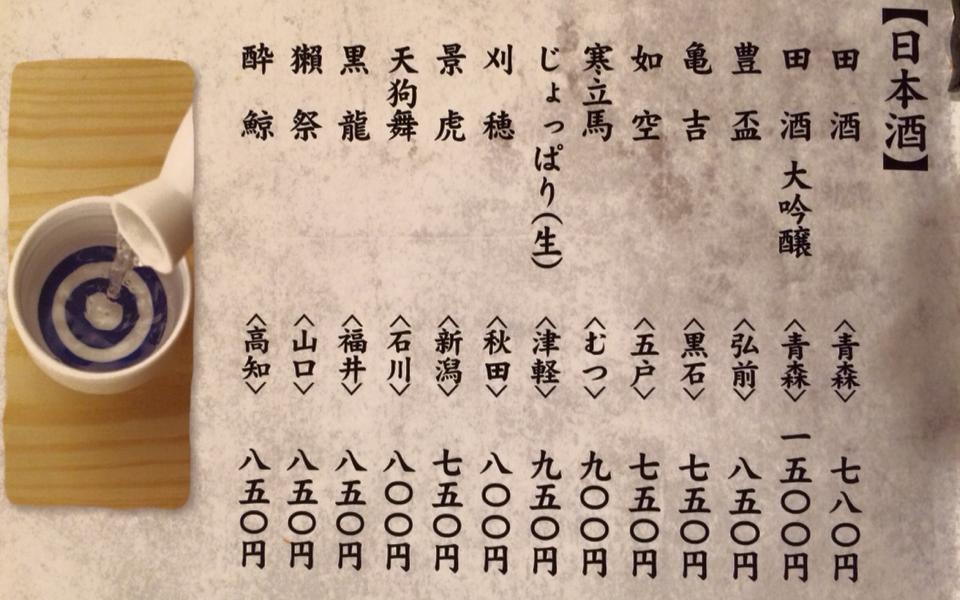 【日本酒】
田酒 〈青森〉 七八〇円
田酒 大吟醸 〈青森〉 一五〇〇円
豊盃 〈弘前〉 八五〇円
亀吉 〈黒石〉 七五〇円
如空 〈五戸〉 七五〇円
寒立馬 〈むつ〉 九〇〇円
じょっぱり(生) 〈津軽〉 九五〇円
刈穂 〈秋田〉 八〇〇円
景虎 〈新潟〉 七五〇円
天狗舞 〈石川〉 八〇〇円
黒龍 〈福井〉 八五〇円
獺祭 〈山口〉 八五〇円
酔鯨 〈高知〉 八五〇円